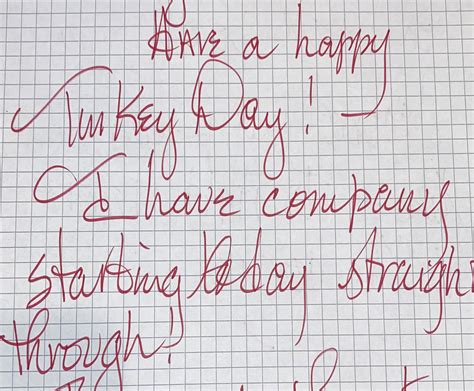 Have a happy
Turkey Day!
I have company
starting today straigh
through!